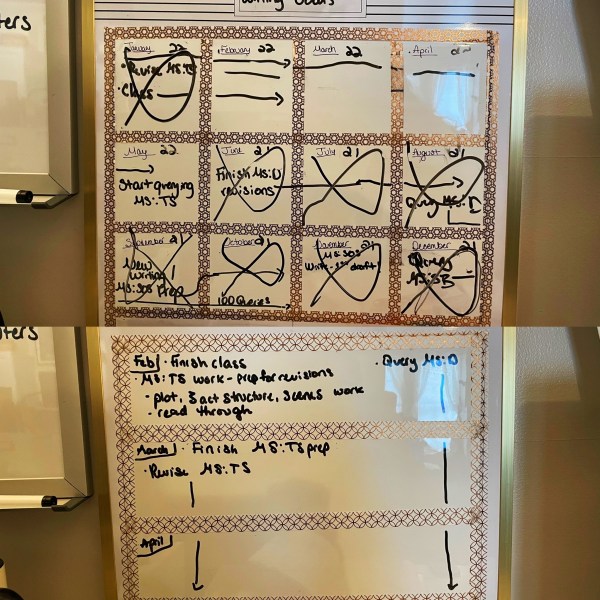 ters
Writing Goals
January 22
• Revise MS:D
• Class
February 22
March 22
April
May 22
Start querying
MS:TS
June 21
Finish MS:D
revisions
July 21
August 21
Query MS:
September 21
New
writing
MS:SOS Prep
October 21
100 Queries
November 21
MS:SOS
Write - 1st draft
December 21
Query
MS:SB
ters
Feb • Finish class
• Query MS:D
• MS:TS work - prep for revisions
- plot, 3 act structure, scenes work
- read through
March • Finish MS:TS prep
• Revise MS:TS
April